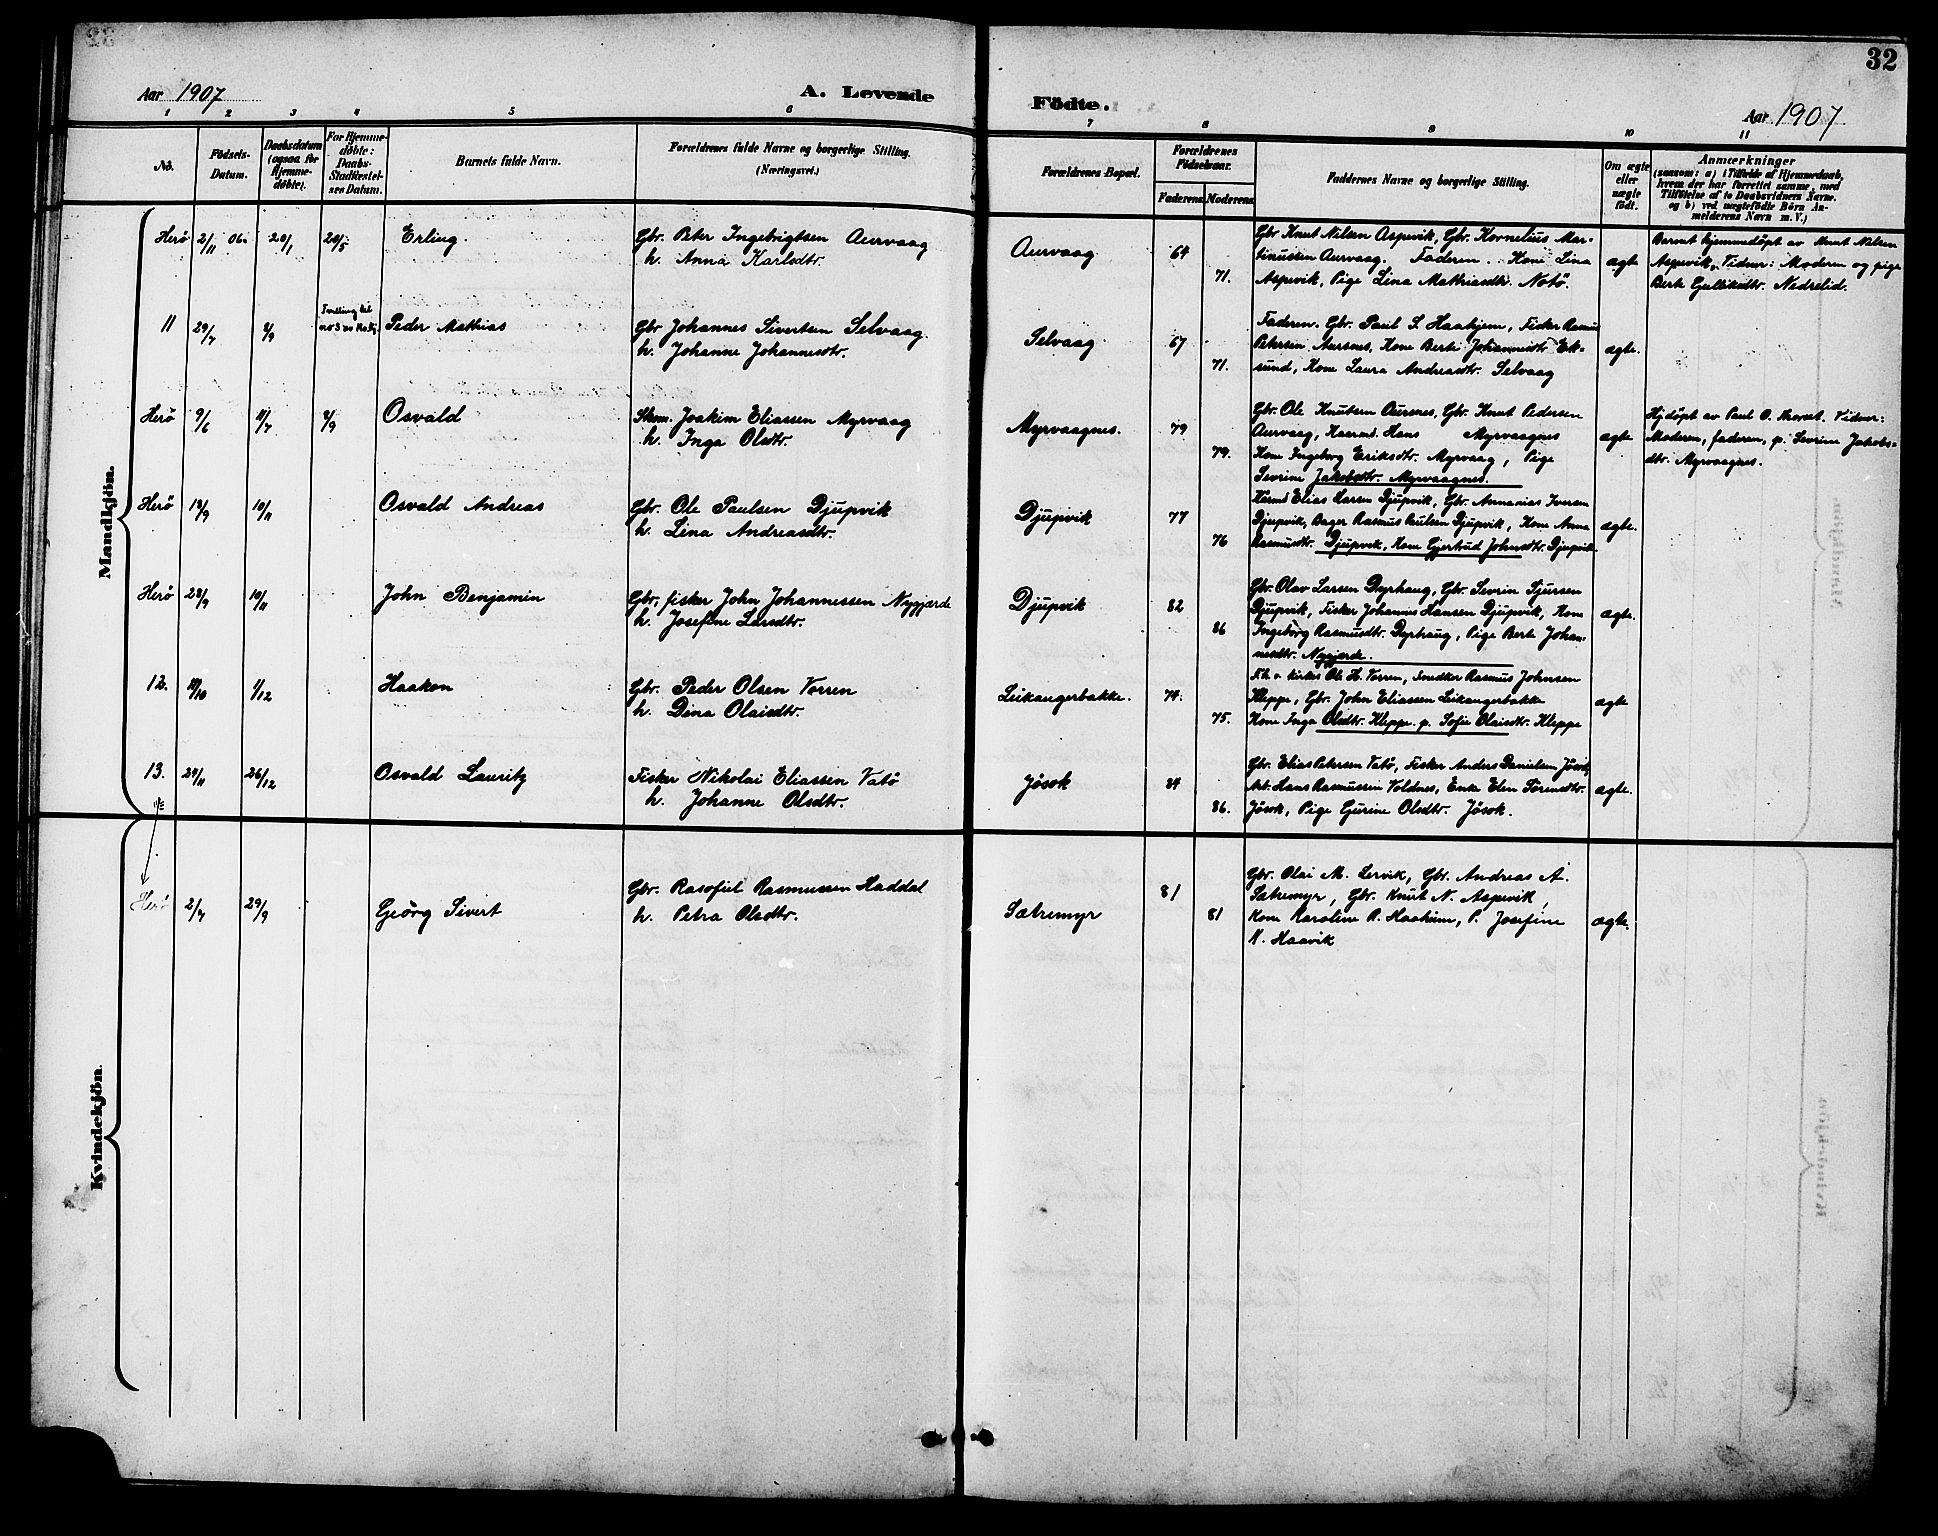 32
Aar 1907
A. Levende
Födte.
Aar 1907.
1 2 3 4 5 6 7 8 9 10 11
No.
Födsels-
Datum.
Daabsdatum
(ogsaa for
Hjemme-
döbte).
For Hjemme-
döbte:
Daabs-
Stadfæstel-
sens Datum.
Barnets fulde Navn.
Forældrenes fulde Navne og borgerlige Stilling.
(Næringsvei.)
Forældrenes Bopæl.
Forældrenes
Födselsaar.
Faderens
Moderens
Faddernes Navne og borgerlige Stilling.
Om ægte
eller
uægte
födt.
Anmærkninger
(saasom: a) i Tilfælde af Hjemmedaab,
hvem der har forrettet samme, med
Tilföielse af to Daabsvidners Navne.
og b) ved uægtefödte Börn An-
melderens Navn m. V.)
Mandkjön.
Herö 2/11 06. 20/1 20/5 Erling.
Gbr. Peter Ingebrigtsen Aurvaag
h. Anna Karlsdtr.
Aurvaag 64 71.
Gbr Knut Nilsen Aspevik, Gbr. Kornelius Mar-
tinussen Aurvaag. Faderen. Kone Lina
Aspevik, Pige Lina Mathiasdtr. Notö.
ægte
Barnet hjemmedøpt av Knut Nilsen
Aspevik. Vidner: Moderen og pige
Berte Gullikdtr. Nedrelid.
11 29/7 8/9
Peder Mathias
Gbr Johannes Sivertsen Selvaag
h. Johanne Johannesdtr.
Selvaag 67 71.
Faderen. Gbr. Paul S. Haakjem, Fisker Rasmus
Petersen Aursnes, Kone Berte Johannesdtr Ek-
sund, Kone Laura Andreasdtr. Selvaag
ægte.
Herö 9/6 11/7 8/9 Osvald
Skom. Joakim Eliassen Myrvaag
h. Inga Olsdtr.
Myrvaagnes. 79 79.
Gbr. Ole Knutsen Aursnes, Gbr. Knut Pedersen
Aurvaag, Kaarmd. Hans Myrvaagnes
Kone Ingeborg Eriksdtr. Myrvaag, Pige
Sevrine Jakobsdtr. Myrvaagnes.
ægte
Hjdøpt av Paul O. Vidner:
Moderen, faderen, p. Sevrine Jakobs-
dtr. Myrvaagnes.
Herö 18/9 10/11 Osvald Andreas
Gbr. Ole Paulsen Djupvik
h. Lina Andreasdtr.
Djupvik 77 76
Kårmd Elias Larsen Djupvik, Gbr. Annanias Iversen
Djupvik, Bager Rasmus Paulsen Djupvik, Kone Anna
Rasmusdtr. Djupvik, Kone Gjertrud Johnsdtr. Djupvik
ægte.
Herö 28/9 10/11 John Benjamin
Gbr, fisker John Johannessen Nygjærde
h. Josefine Larsdtr.
Djupvik 82 86
Gbr. Olav Larsen Dyphaug, Gbr. Sevrin Sjursen
Djupvik, Fisker Johannes Hansen Djupvik, Kone
Ingeborg Rasmusdtr. Dyphaug, Pige Berte Johan-
nesdtr. Nygjærde.
ægte.
12. 1/12
Haakon
Gbr. Peder Olsen Vorren
h. Dina Olaisdtr.
Leikangerbakke. 74. 75.
F.h.v. kirkes Ole H. Vorren, Snedker Rasmus Johnsen
Kleppe, Gbr. John Eliassen Leikangerbakke
Kone Inga Olsdtr. Kleppe. p. Sofie Olaisdtr. Kleppe
ægte
13. 24/11 26/12 Osvald Lauritz
Fisker Nikolai Eliassen Vatö
h. Johanne Olsdtr.
Jösok 84 86.
Gbr. Elias Petersen Vatö, Fisker Anders Danielsen Jösok,
Arb. Hans Rasmussen Voldnes, Enke Elen Sörensdtr.
Jösok, Pige Gurine Olsdtr. Jösok.
ægte.
Kvindekjön.
Herö 2/7 29/9 Geörg Sivert
Gbr. Rasofiel Rasmussen Haddal
h. Petra Olsdtr.
Sætremyr 81 81
Gbr. Olai M. Lervik, Gbr. Andreas A.
Sætremyr, Gbr. Knut N. Aspevik,
Kone Karoline R. P. Josefine
N. Haavik
ægte.